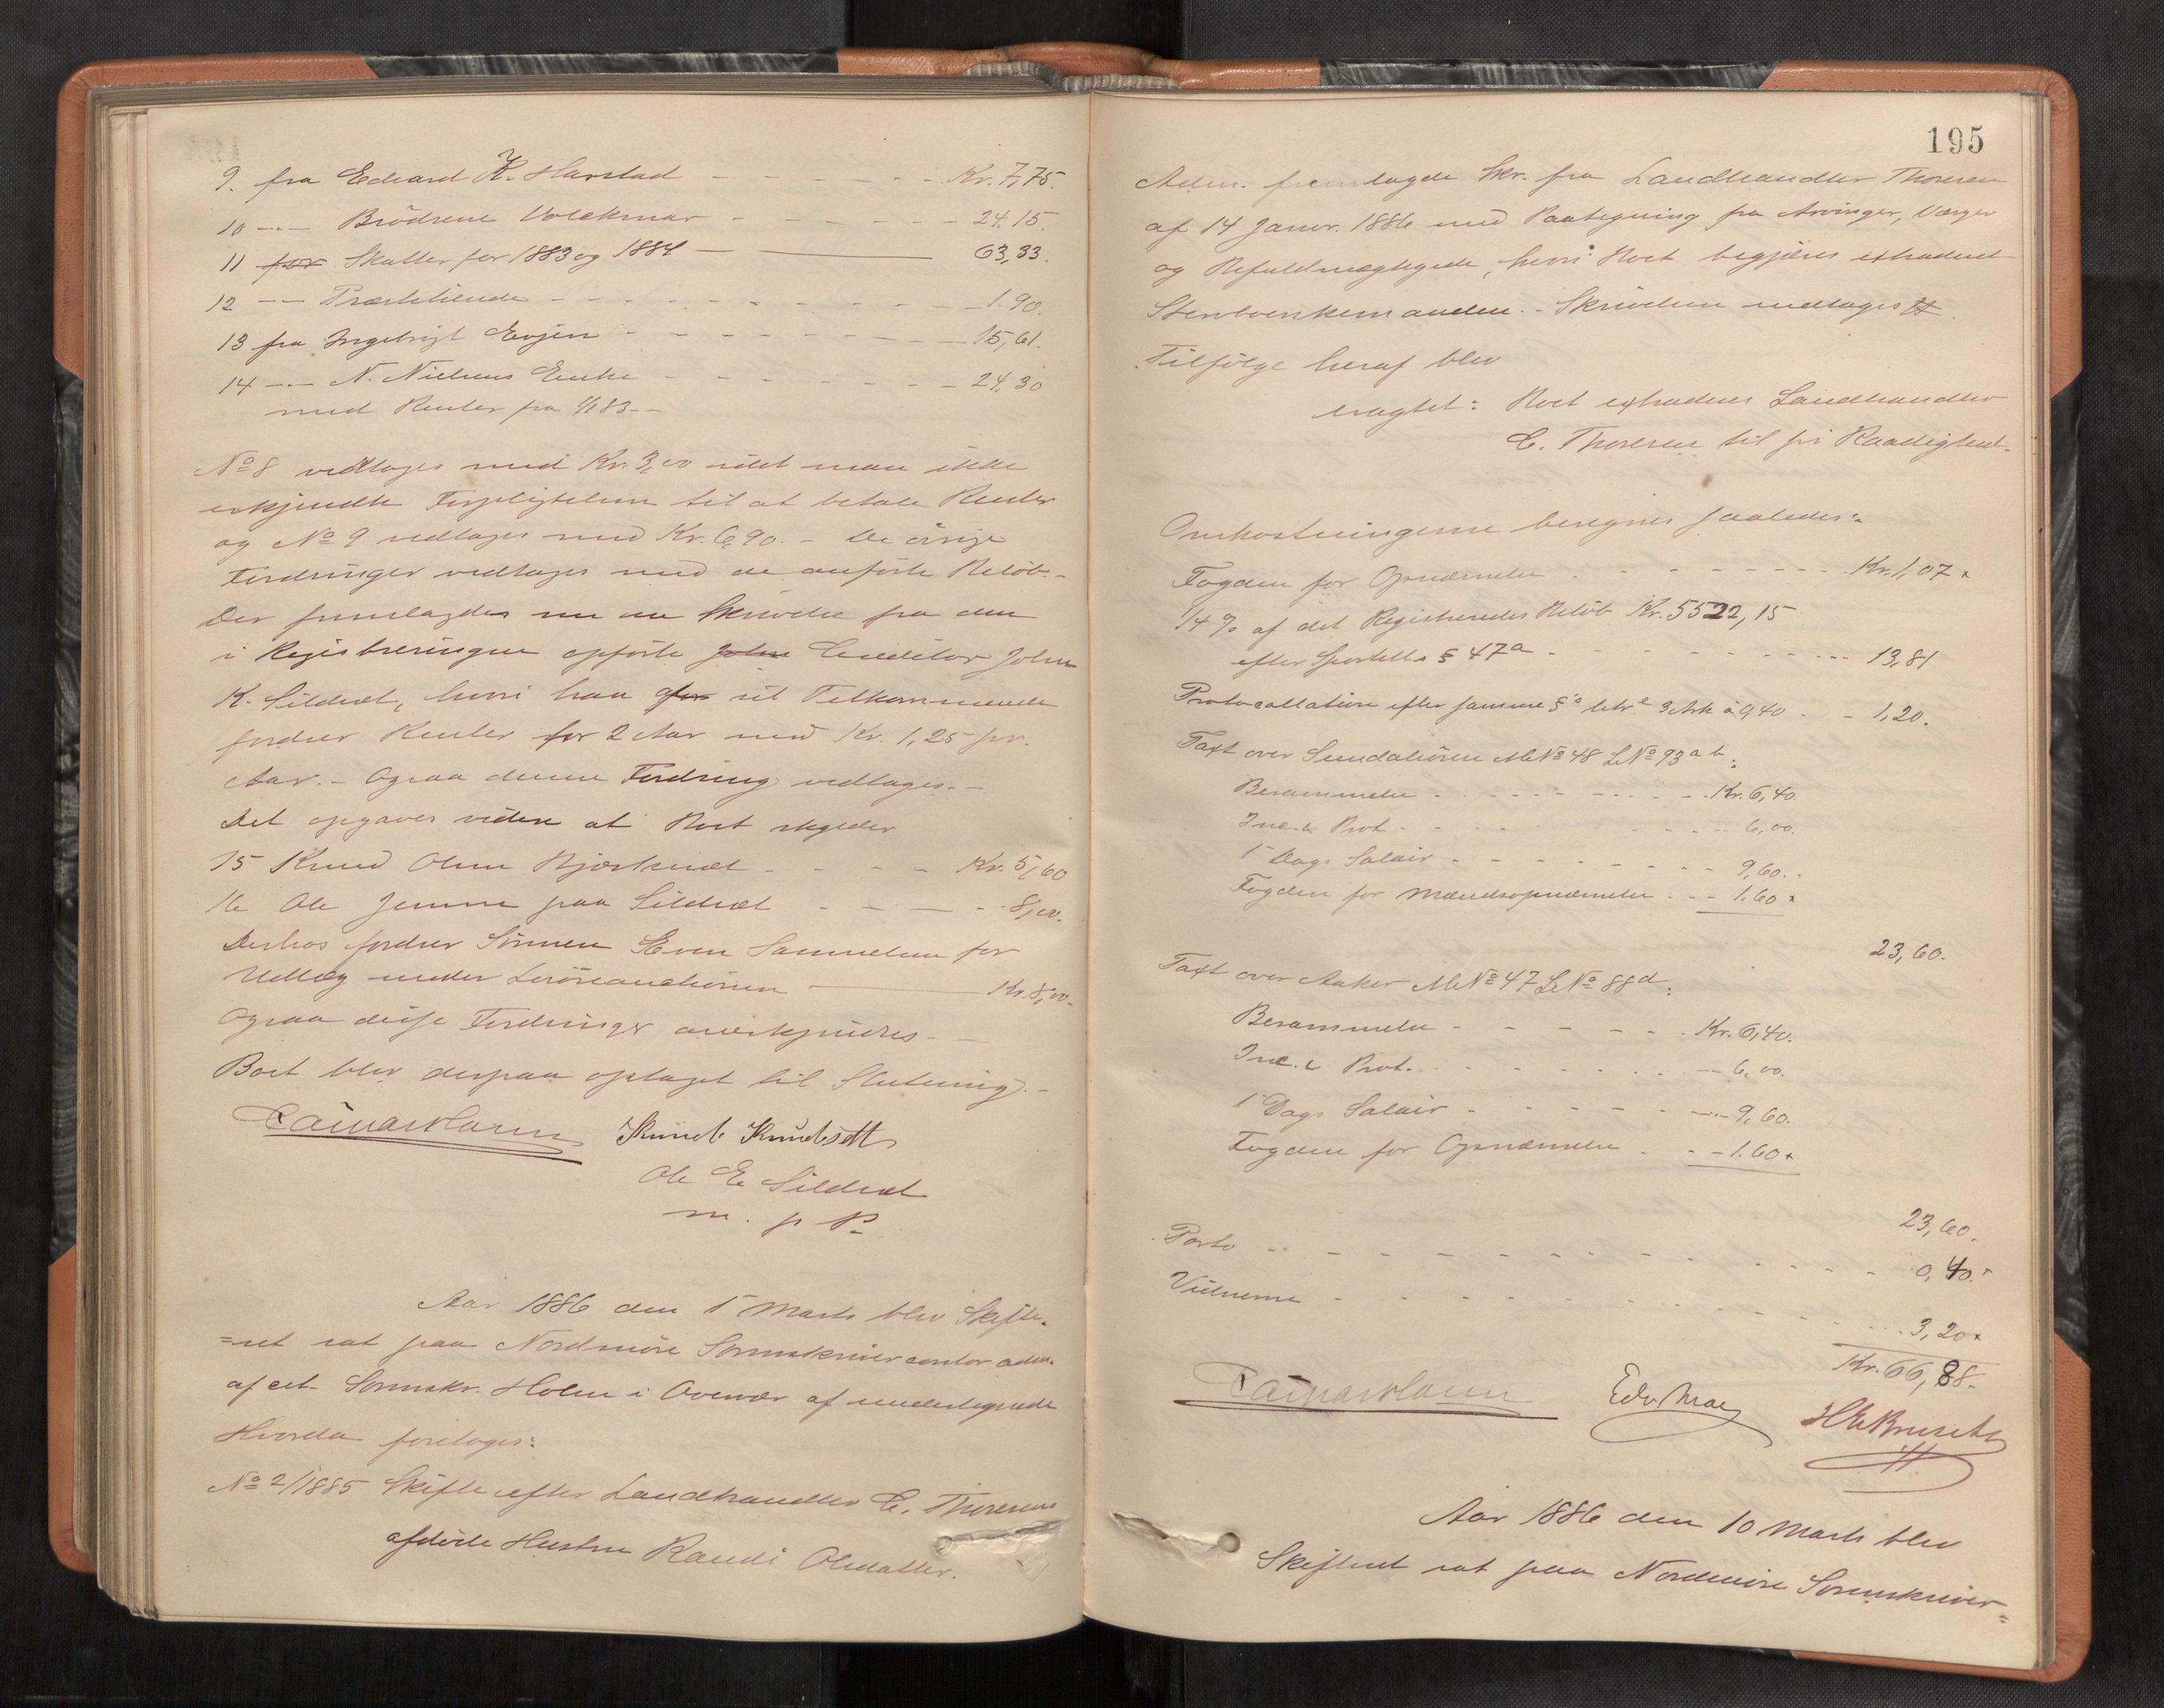 9. fra Edvard K. Harstad - - - - - - Kr. 7,75.
10 -"- Brødrene Volckmar - - - - - - 24.15.
11 for Skatter for 1883 og 1884 - 63,33.
12 -"- Præstetiende - - - - - - 1.90.
13 fra Ingebrigt Evjen - - - - - - 15,61.
14 -"- N. Nielsens Enke - - - - - - 24,30
med Renter fra 1/1 83.-
No 8 vedtages med Kr. 3,00 idet man ikke
erkjendte Forpligtelsen til at betale Renter
og No 9 vedtages med Kr. 6,90. - De øvrige
Fordringer vedtages med de anførte Beløb.-
Der fremlagdes nu en Skrivelse fra den
i Registreringen opførte John Creditor John
K. Sildset, hvori han for sit Tilkommende
fordrer Renter for 2 Aar med Kr. 1,25 pr.
Aar. - Ogsaa denne Fordring vedtages.-
Det opgaves videre at Boet skylder
15 Knud Olsen - - - - Kr. 5,60
16 Ole Jemne paa Sildset - - - - 8,00.
Derhos fordrer Sønnen Even Samuelsen for
Udlæg under Løsøreauctionen - Kr. 8,00.
Ogsaa disse Fordringer anerkjendes.-
Boet blev derpaa optaget til Slutning.-
Knud Knudsøtt
Ole E Sildset
m. p. P.
Aar 1886 den 5 Marts blev Skifte-
=ret sat paa Nordmøre Sorenskrivercontor adm.
af cst. Sorenskr. Holm i Overvær af undertegnede
Hvorda foretoges:
No 2/1885 Skifte efter Landhandler E. Thoresens
afdøde Hustru Randi Olsdatter.
195
Adm. fremlagde Skr. fra Landhandler Thoresen
af 14 Januar. 1886 med Paategning fra Arvinger, Værger
og Befuldmægtigede, hvori Boet begjæres extraderet
Stervboenkemanden. - Skrivelsen vedtages
Tilfølge heraf blev
eragtet: Boet extraderes Landhandler
E. Thoresen til fri Raadighed.
Omkostningerne beregnes saaledes:
Fogden for Opnævnelse - - - - - - Kr. 1,07 x
1/4 % af det Registreredes Beløb Kr. 5522,15
efter Sportell. § 47a - - - - - - 13,81
Protocollation efter samme § litr. e 3 Ark à 0,40 - - 1,20.
Taxt over Sundalsøren M.No 48 L.No 93 a b:
Berammelse - - - - - - Kr. 6,40.
Inc. & Prot. - - - - - - 6,00.
1 Dags Salair - - - - - - 9,60.
Fogden for Mændsopnævnelse - - - 1.60 x
23,60.
Taxt over Aaker M.No 47 L.No 88d:
Berammelse - - - - - - Kr. 6,40.
Inc. & Prot. - - - - - - 6,00.
1 Dags Salair - - - - - - 9,60.
Fogden for Opnævnelse - - - 1.60 x
23,60.
Porto - - - - - - 0,40.
Vidnerne - - - - - - 3,20 x
Kr. 66,88.
Edv Moe
Aar 1886 den 10 Marts blev
Skifteret sat paa Nordmøre Sorenskriver-